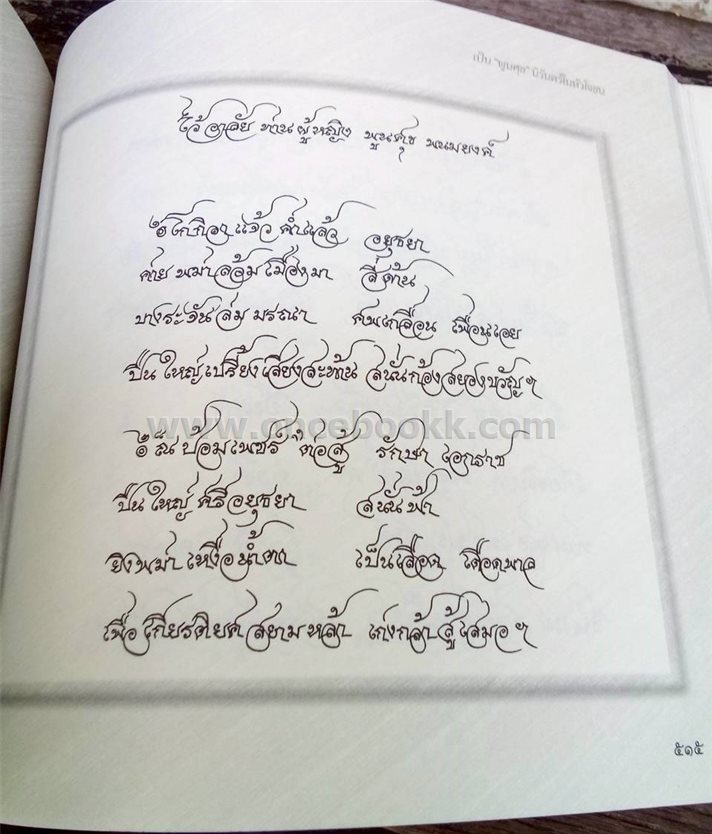 เป็น "พูนศุข" นิรันดร์ในหัวใจชน
ไว้อาลัย ท่านผู้หญิง พูนศุข พนมยงค์
แล้ว อยุธยา
ค่าย พม่า ล้อม เมือง มา สี่ ด้าน
บางระจัน ล่ม มรณา ศพ เกลื่อน เพื่อนเอย
ปืน ใหญ่ เปรี้ยง เสียง สะท้าน สนั่น ก้อง สยอง ขวัญ ฯ
ณ ป้อม เพชร ต่อสู้ รักษา เอกราช
ปืน ใหญ่ ศรี อยุธยา สนั่น ฟ้า
ยิง พม่า เหงื่อ น้ำตา เป็น เลือด เดือด พาล
เพื่อ เกียรติยศ สยาม หล้า เก่งกล้า สู้ เสมอ ฯ
www.oncebookk.com
๕๑๕